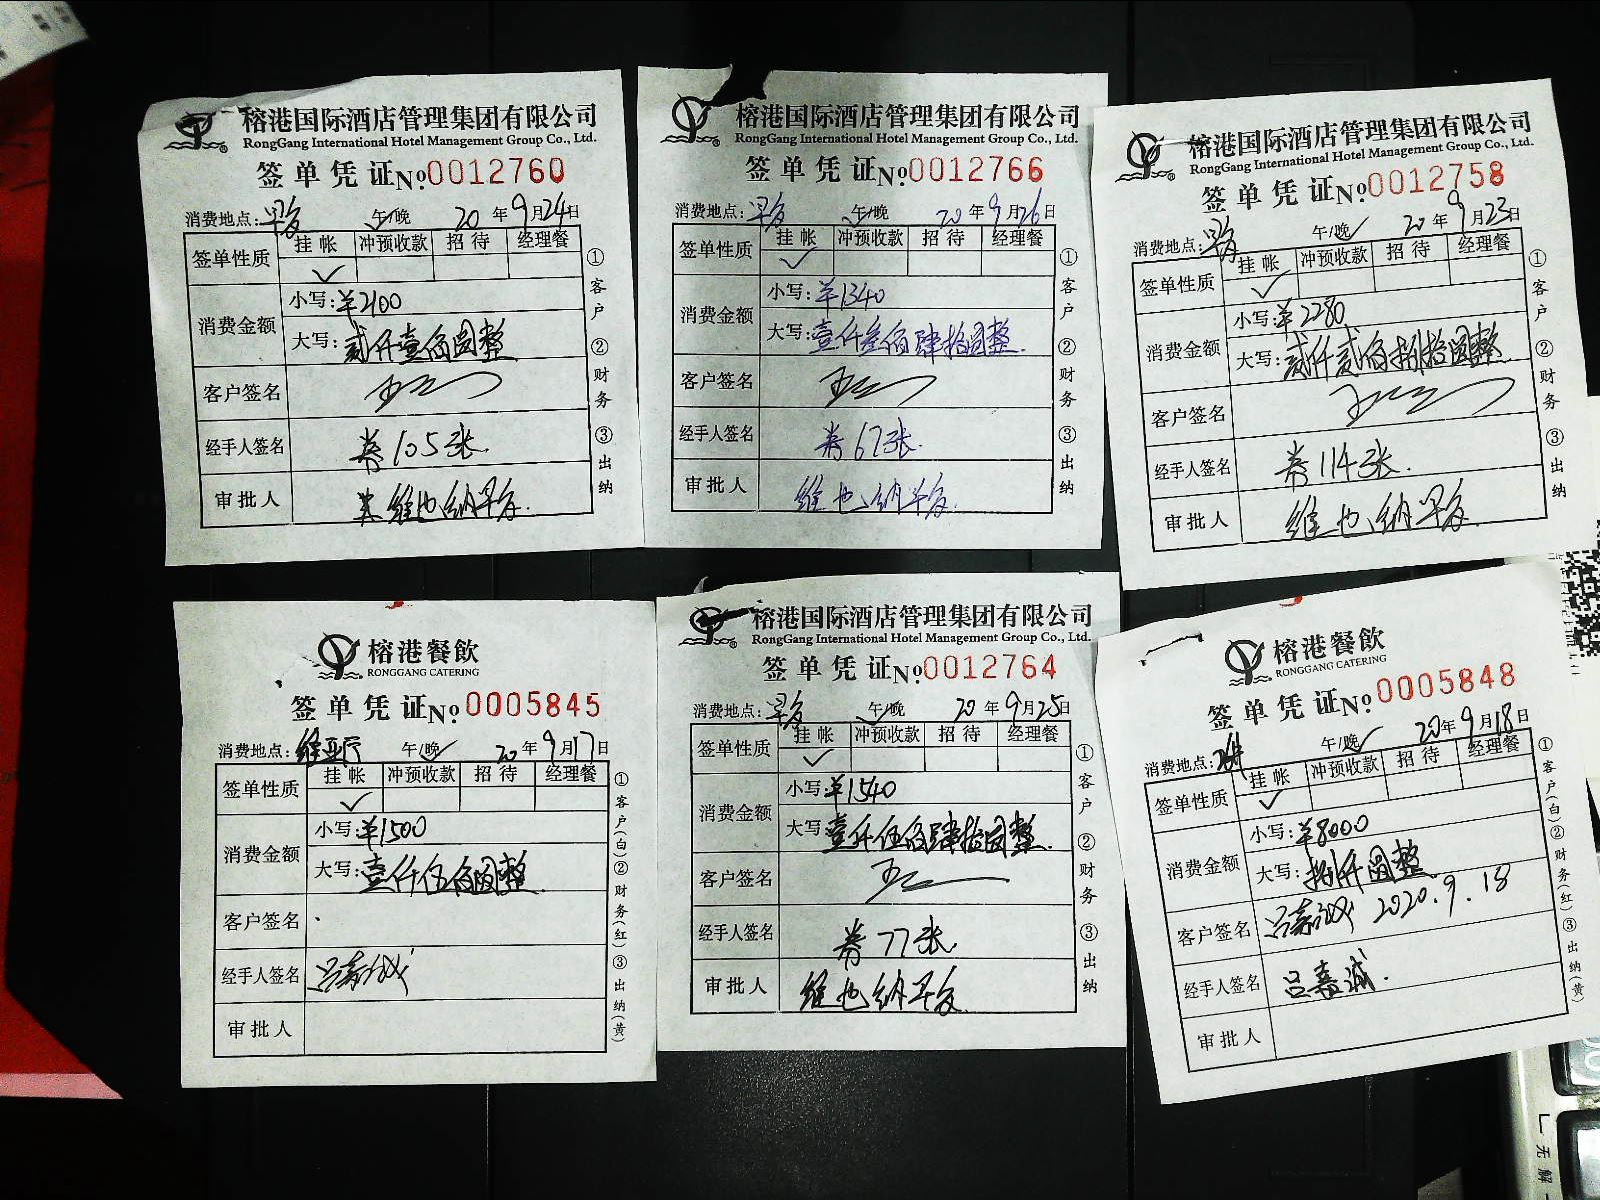 榕港国际酒店管理集团有限公司
RongGang International Hotel Management Group Co., Ltd.
签单凭证No.0012760
消费地点: 早餐 午/晚 20年9月24日
签单性质 挂帐 冲预收款 招待 经理餐
✓
消费金额 小写:¥2100
大写: 贰仟壹佰圆整
客户签名
经手人签名 券105张.
审批人 维也纳早餐.
①客户 ②财务 ③出纳
榕港国际酒店管理集团有限公司
RongGang International Hotel Management Group Co., Ltd.
签单凭证No.0012766
消费地点: 早餐 午/晚 20年9月26日
签单性质 挂帐 冲预收款 招待 经理餐
✓
消费金额 小写:¥1340
大写: 壹仟叁佰肆拾圆整.
客户签名
经手人签名 券67张.
审批人 维也纳早餐.
①客户 ②财务 ③出纳
榕港国际酒店管理集团有限公司
RongGang International Hotel Management Group Co., Ltd.
签单凭证No.0012758
消费地点: 早餐 午/晚 20年9月23日
签单性质 挂帐 冲预收款 招待 经理餐
✓
消费金额 小写:¥2280
大写: 贰仟贰佰捌拾圆整
客户签名
经手人签名 券114张.
审批人 维也纳早餐.
①客户 ②财务 ③出纳
榕港餐飲
RONGGANG CATERING
签单凭证No.0005845
消费地点: 维亚厅 午/晚✓ 20年9月17日
签单性质 挂帐 冲预收款 招待 经理餐
✓
消费金额 小写:¥1500
大写: 壹仟伍佰圆整
客户签名
经手人签名 吕嘉诚
审批人
①客户(白)②财务(红)③出纳(黄)
榕港国际酒店管理集团有限公司
RongGang International Hotel Management Group Co., Ltd.
签单凭证No.0012764
消费地点: 早餐 午/晚 20年9月25日
签单性质 挂帐 冲预收款 招待 经理餐
✓
消费金额 小写:¥1540
大写: 壹仟伍佰肆拾圆整.
客户签名
经手人签名 券77张.
审批人 维也纳早餐.
①客户 ②财务 ③出纳
榕港餐飲
RONGGANG CATERING
签单凭证No.0005848
消费地点: 午/晚✓ 20年9月18日
签单性质 挂帐 冲预收款 招待 经理餐
✓
消费金额 小写:¥8000
大写: 捌仟圆整.
客户签名 吕嘉诚 2020.9.18
经手人签名 吕嘉诚.
审批人
①客户(白)②财务(红)③出纳(黄)
无解